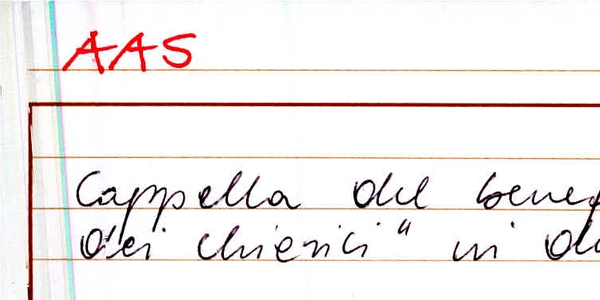 AAS
Cappella del
dei chierici" in